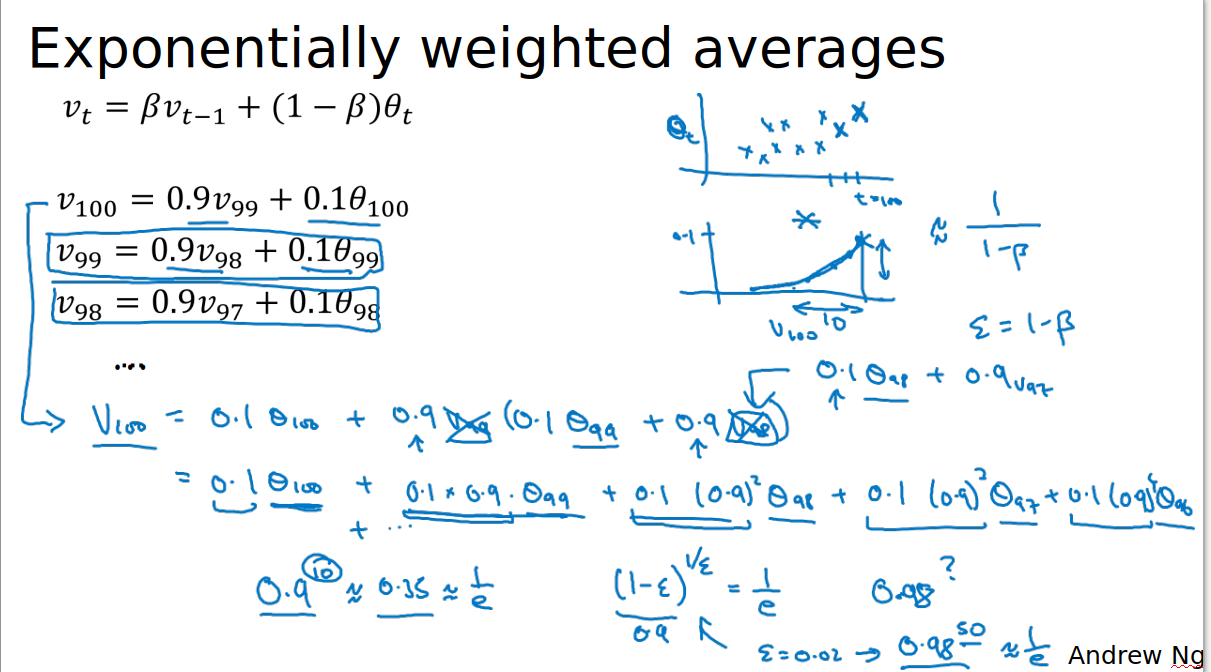 Exponentially weighted averages
vₜ = βvₜ₋₁ + (1 − β)θₜ
θₜ
t=100
v₁₀₀ = 0.9v₉₉ + 0.1θ₁₀₀
v₉₉ = 0.9v₉₈ + 0.1θ₉₉
v₉₈ = 0.9v₉₇ + 0.1θ₉₈
....
0.1
10
V₁₀₀
≈ 1/(1-β)
ε = 1-β
0.1 θ₉₈ + 0.9 v₉₇
V₁₀₀ = 0.1 θ₁₀₀ + 0.9 (0.1 θ₉₉ + 0.9 )
= 0.1 θ₁₀₀ + 0.1 × 0.9 · θ₉₉ + 0.1 (0.9)² θ₉₈ + 0.1 (0.9)³ θ₉₇ + 0.1 (0.9)⁴ θ₉₆
+ ...
0.9¹⁰ ≈ 0.35 ≈ 1/e
(1-ε)^(1/ε) = 1/e
0.9
0.98^?
ε=0.02 → 0.98⁵⁰ ≈ 1/e
Andrew Ng